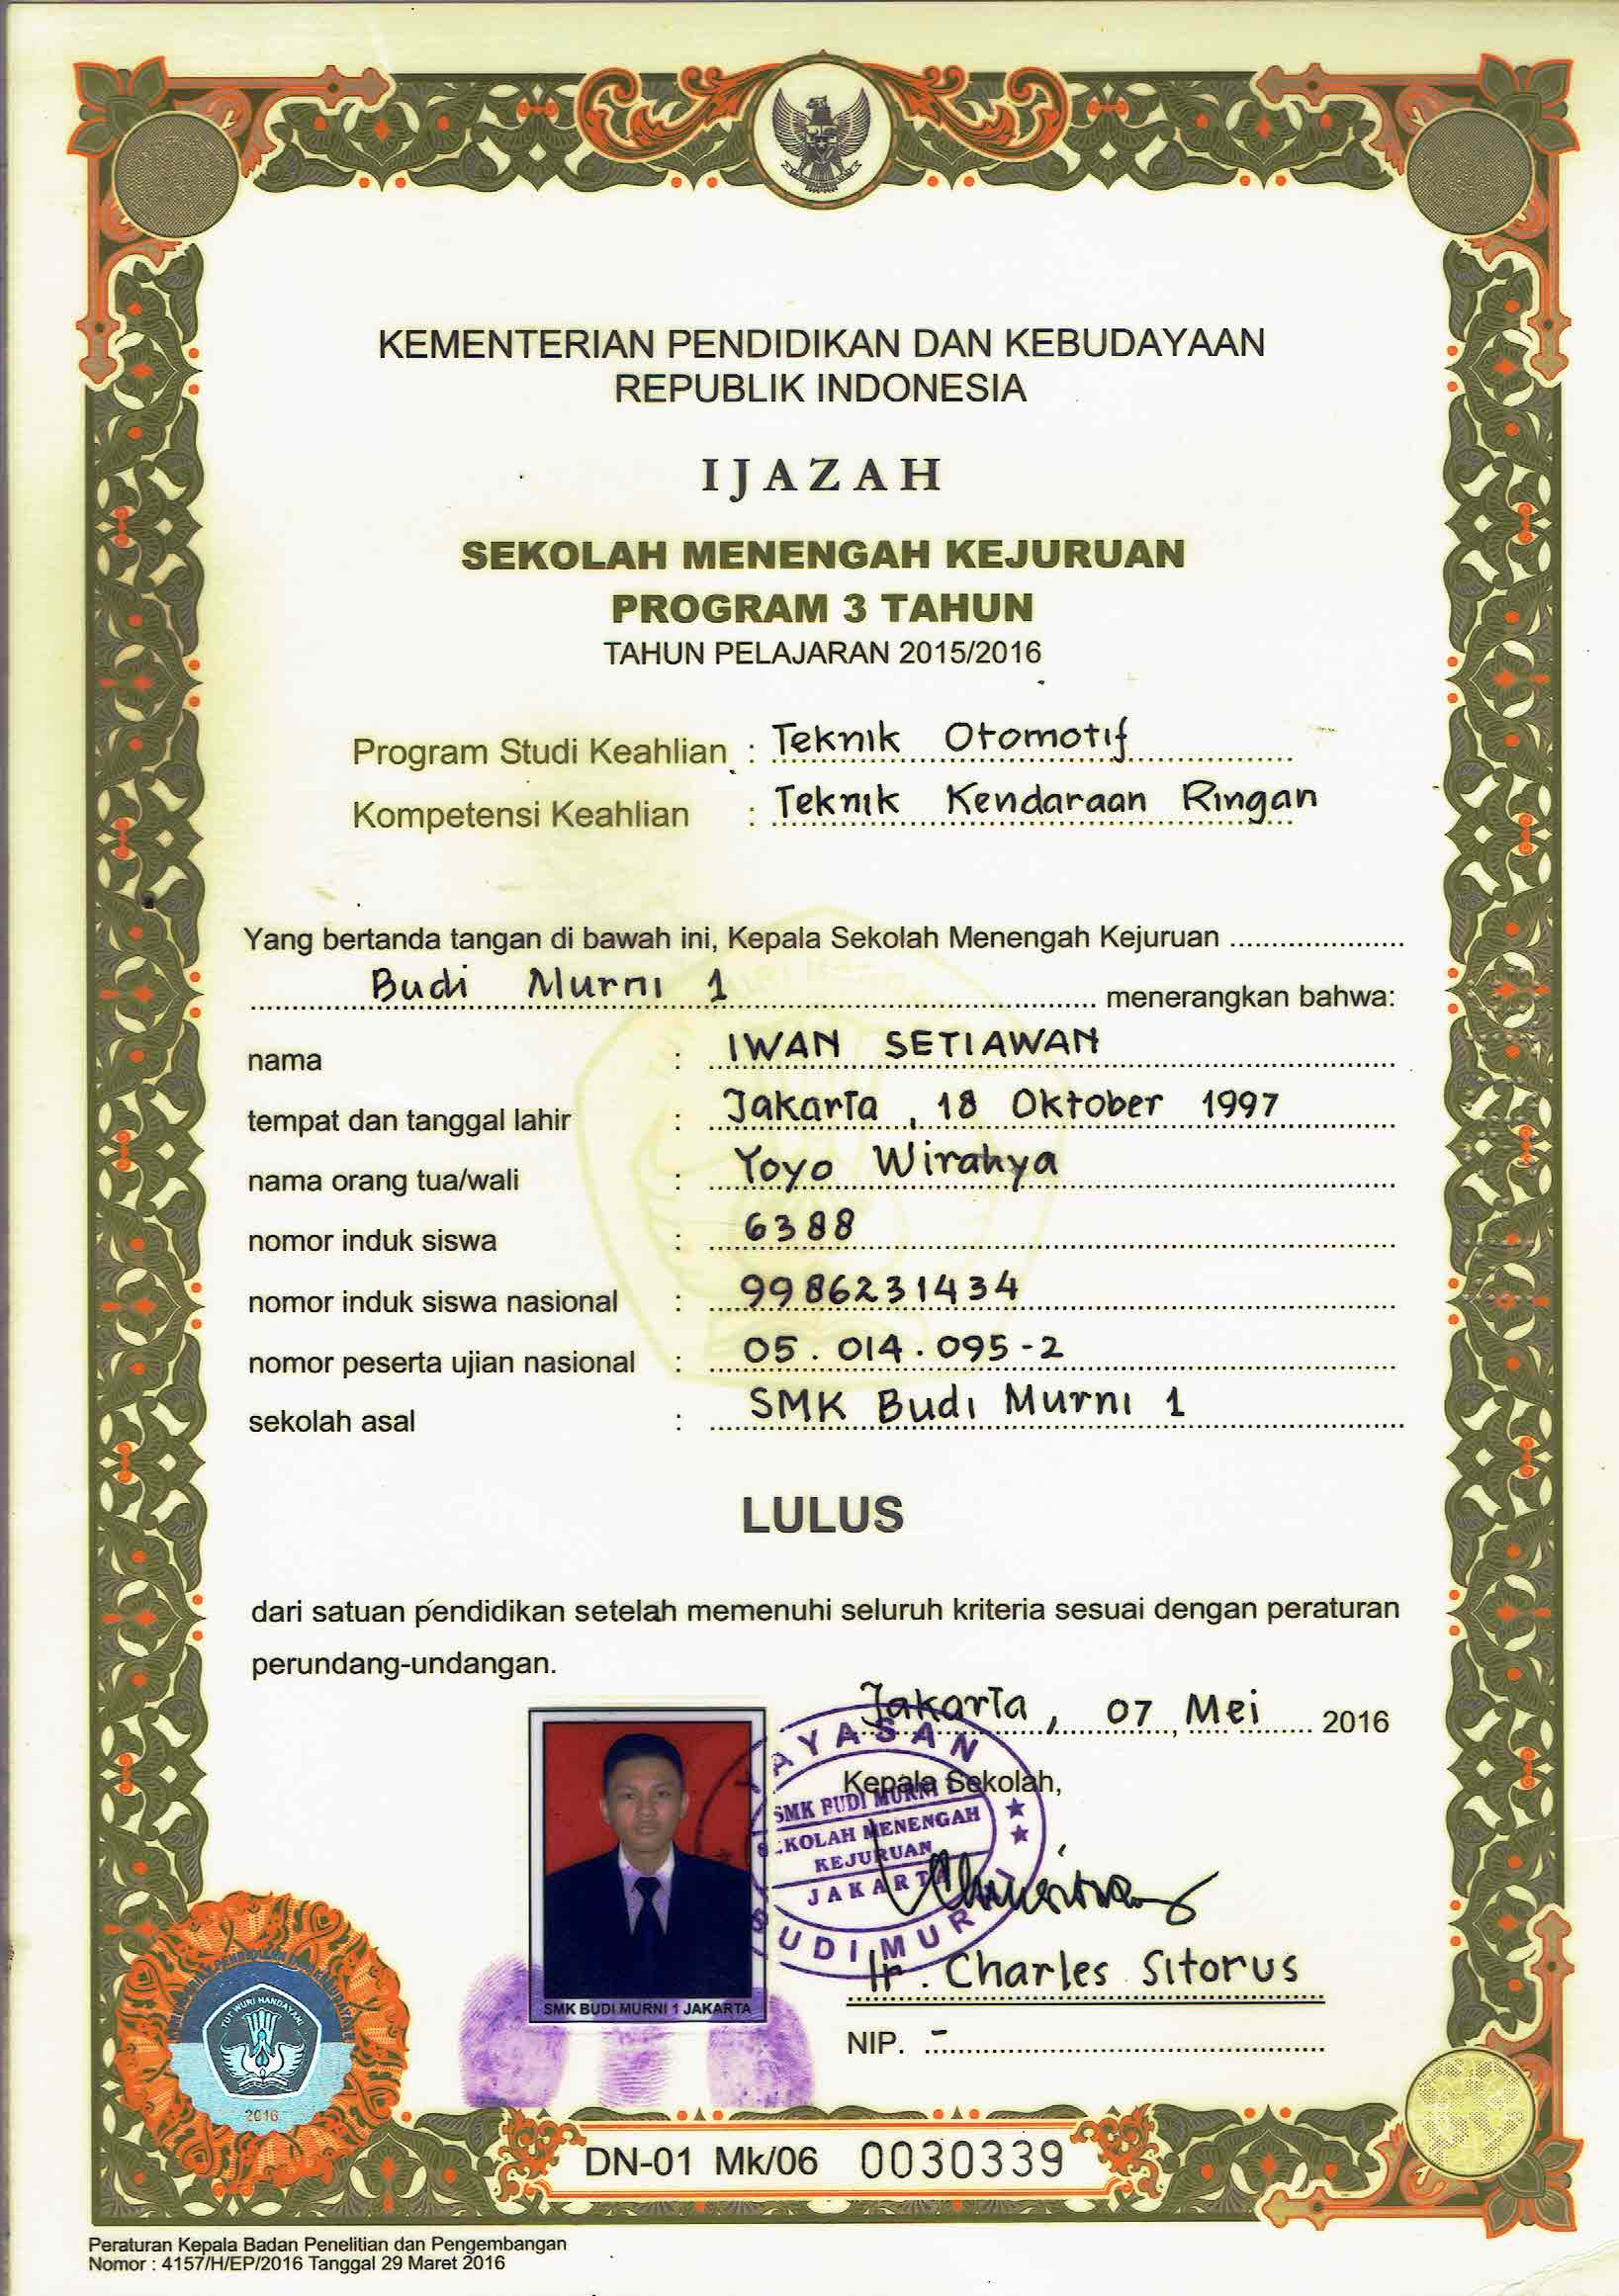 KEMENTERIAN PENDIDIKAN DAN KEBUDAYAAN
REPUBLIK INDONESIA
IJAZAH
SEKOLAH MENENGAH KEJURUAN
PROGRAM 3 TAHUN
TAHUN PELAJARAN 2015/2016
Program Studi Keahlian : Teknik Otomotif
Kompetensi Keahlian : Teknik Kendaraan Ringan
Yang bertanda tangan di bawah ini, Kepala Sekolah Menengah Kejuruan
Budi Murni 1 menerangkan bahwa:
nama : IWAN SETIAWAN
tempat dan tanggal lahir : Jakarta, 18 Oktober 1997
nama orang tua/wali : Yoyo Wirahya
nomor induk siswa : 6388
nomor induk siswa nasional : 9986231434
nomor peserta ujian nasional : 05.014.095-2
sekolah asal : SMK Budi Murni 1
LULUS
dari satuan pendidikan setelah memenuhi seluruh kriteria sesuai dengan peraturan
perundang-undangan.
Jakarta, 07 Mei 2016
YAYASAN
Kepala Sekolah,
SMK BUDI MURNI
SEKOLAH MENENGAH
KEJURUAN
JAKARTA
BUDI MURNI
Ir. Charles Sitorus
SMK BUDI MURNI 1 JAKARTA
NIP. -
TUT WURI HANDAYANI
2016
DN-01 Mk/06 0030339
Peraturan Kepala Badan Penelitian dan Pengembangan
Nomor : 4157/H/EP/2016 Tanggal 29 Maret 2016